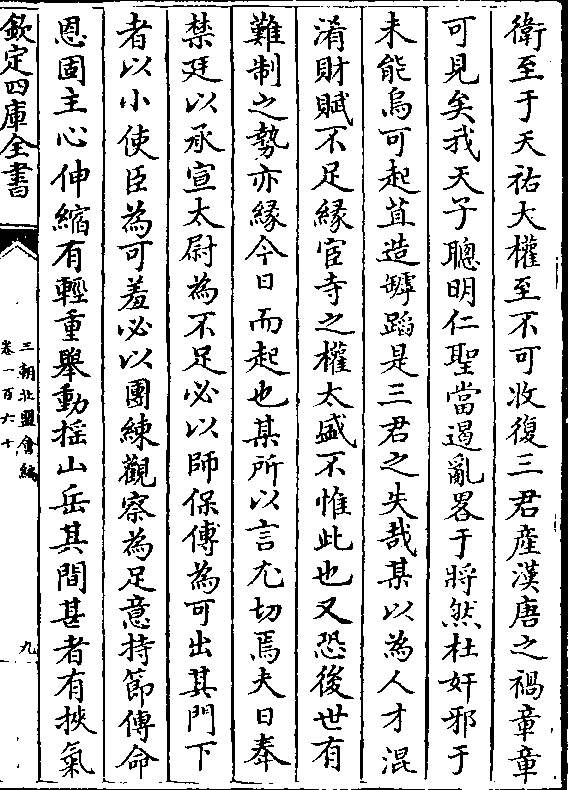 衛至于天祐大權至不可收復三君産漢唐之禍章章
可見矣我天子聰明仁聖當遏亂畧于將然杜奸邪于
未能烏可起苴造罅蹈是三君之失哉某以為人才混
淆財賦不足緣宦寺之權太盛不惟此也又恐後世有
難制之勢亦緣今日而起也某所以言尤切焉夫日奉
禁廷以承宣太尉為不足必以師保傅為可出其門下
者以小使臣為可羞必以團練觀察為足意持節傳命
恩固主心伸縮有輕重舉動揺山岳其間甚者有挾氣
欽定四庫全書
三朝北盟會編
卷一百六十
九